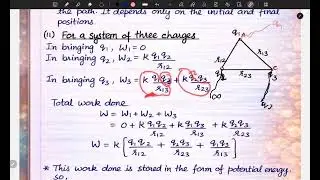 the path. It depends only on the initial and final
positions.
(ii) For a system of three charges
In bringing q₁, W₁ = 0
In bringing q₂, W₂ = k q₁q₂/r₁₂
In bringing q₃, W₃ = k q₁q₃/r₁₃ + k q₂q₃/r₂₃
Total work done
W = W₁ + W₂ + W₃
= 0 + k q₁q₂/r₁₂ + k q₁q₃/r₁₃ + k q₂q₃/r₂₃
W = k [q₁q₂/r₁₂ + q₂q₃/r₂₃ + q₁q₃/r₁₃]
* This work done is stored in the form of potential energy.
so,
q₁
A
r₁₂
r₁₃
r₂₃